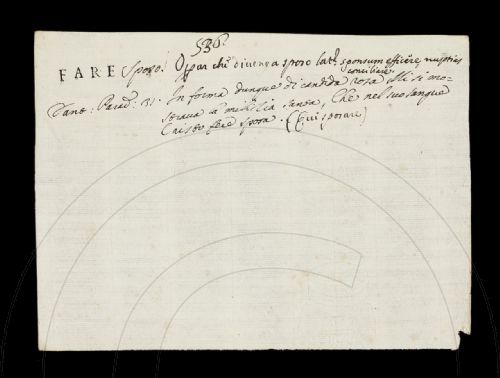 536.
FARE Sposo. Oprar che divenga sposo lat. sponsum efficere, nuptias
conciliare
Dant: Parad: 31. In forma dunque di candida rosa Mi si mo-
strava la milizia santa, Che nel suo sangue
Cristo fece sposa. (Qui sposare)